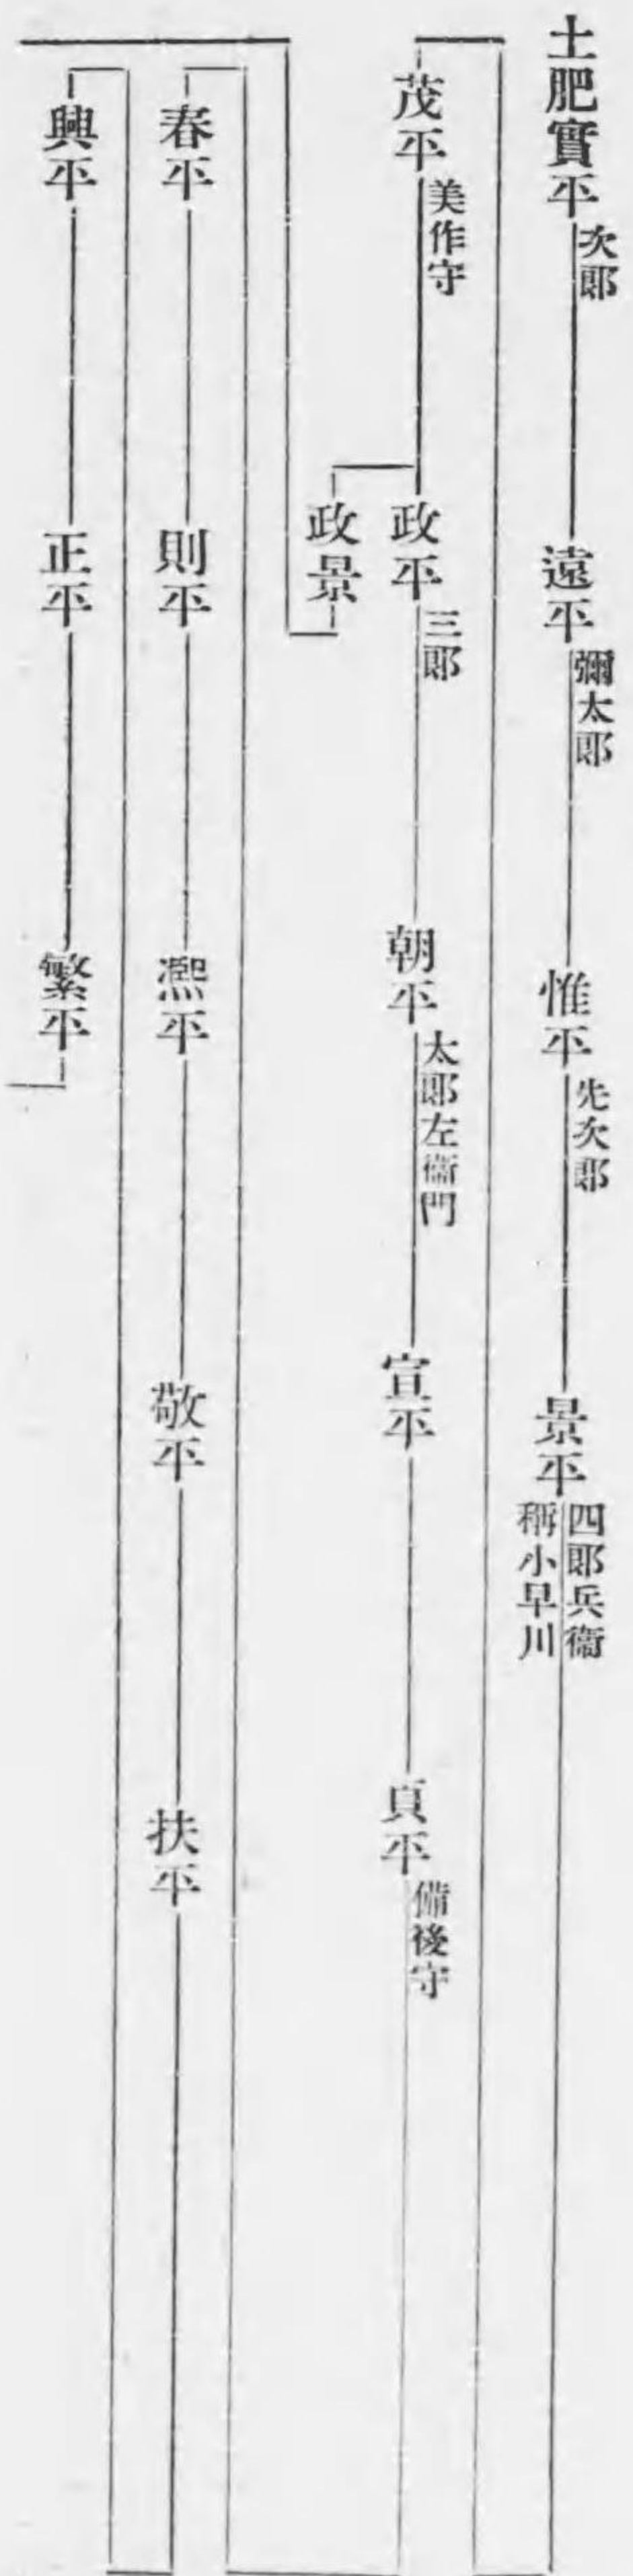 土肥實平 次郎
遠平 彌太郎
惟平 先次郎
景平 四郎兵衞 稱小早川
茂平 美作守
政平 三郎
朝平 太郎左衞門
宣平
貞平 備後守
政景
春平
則平
凞平
敬平
扶平
興平
正平
繁平